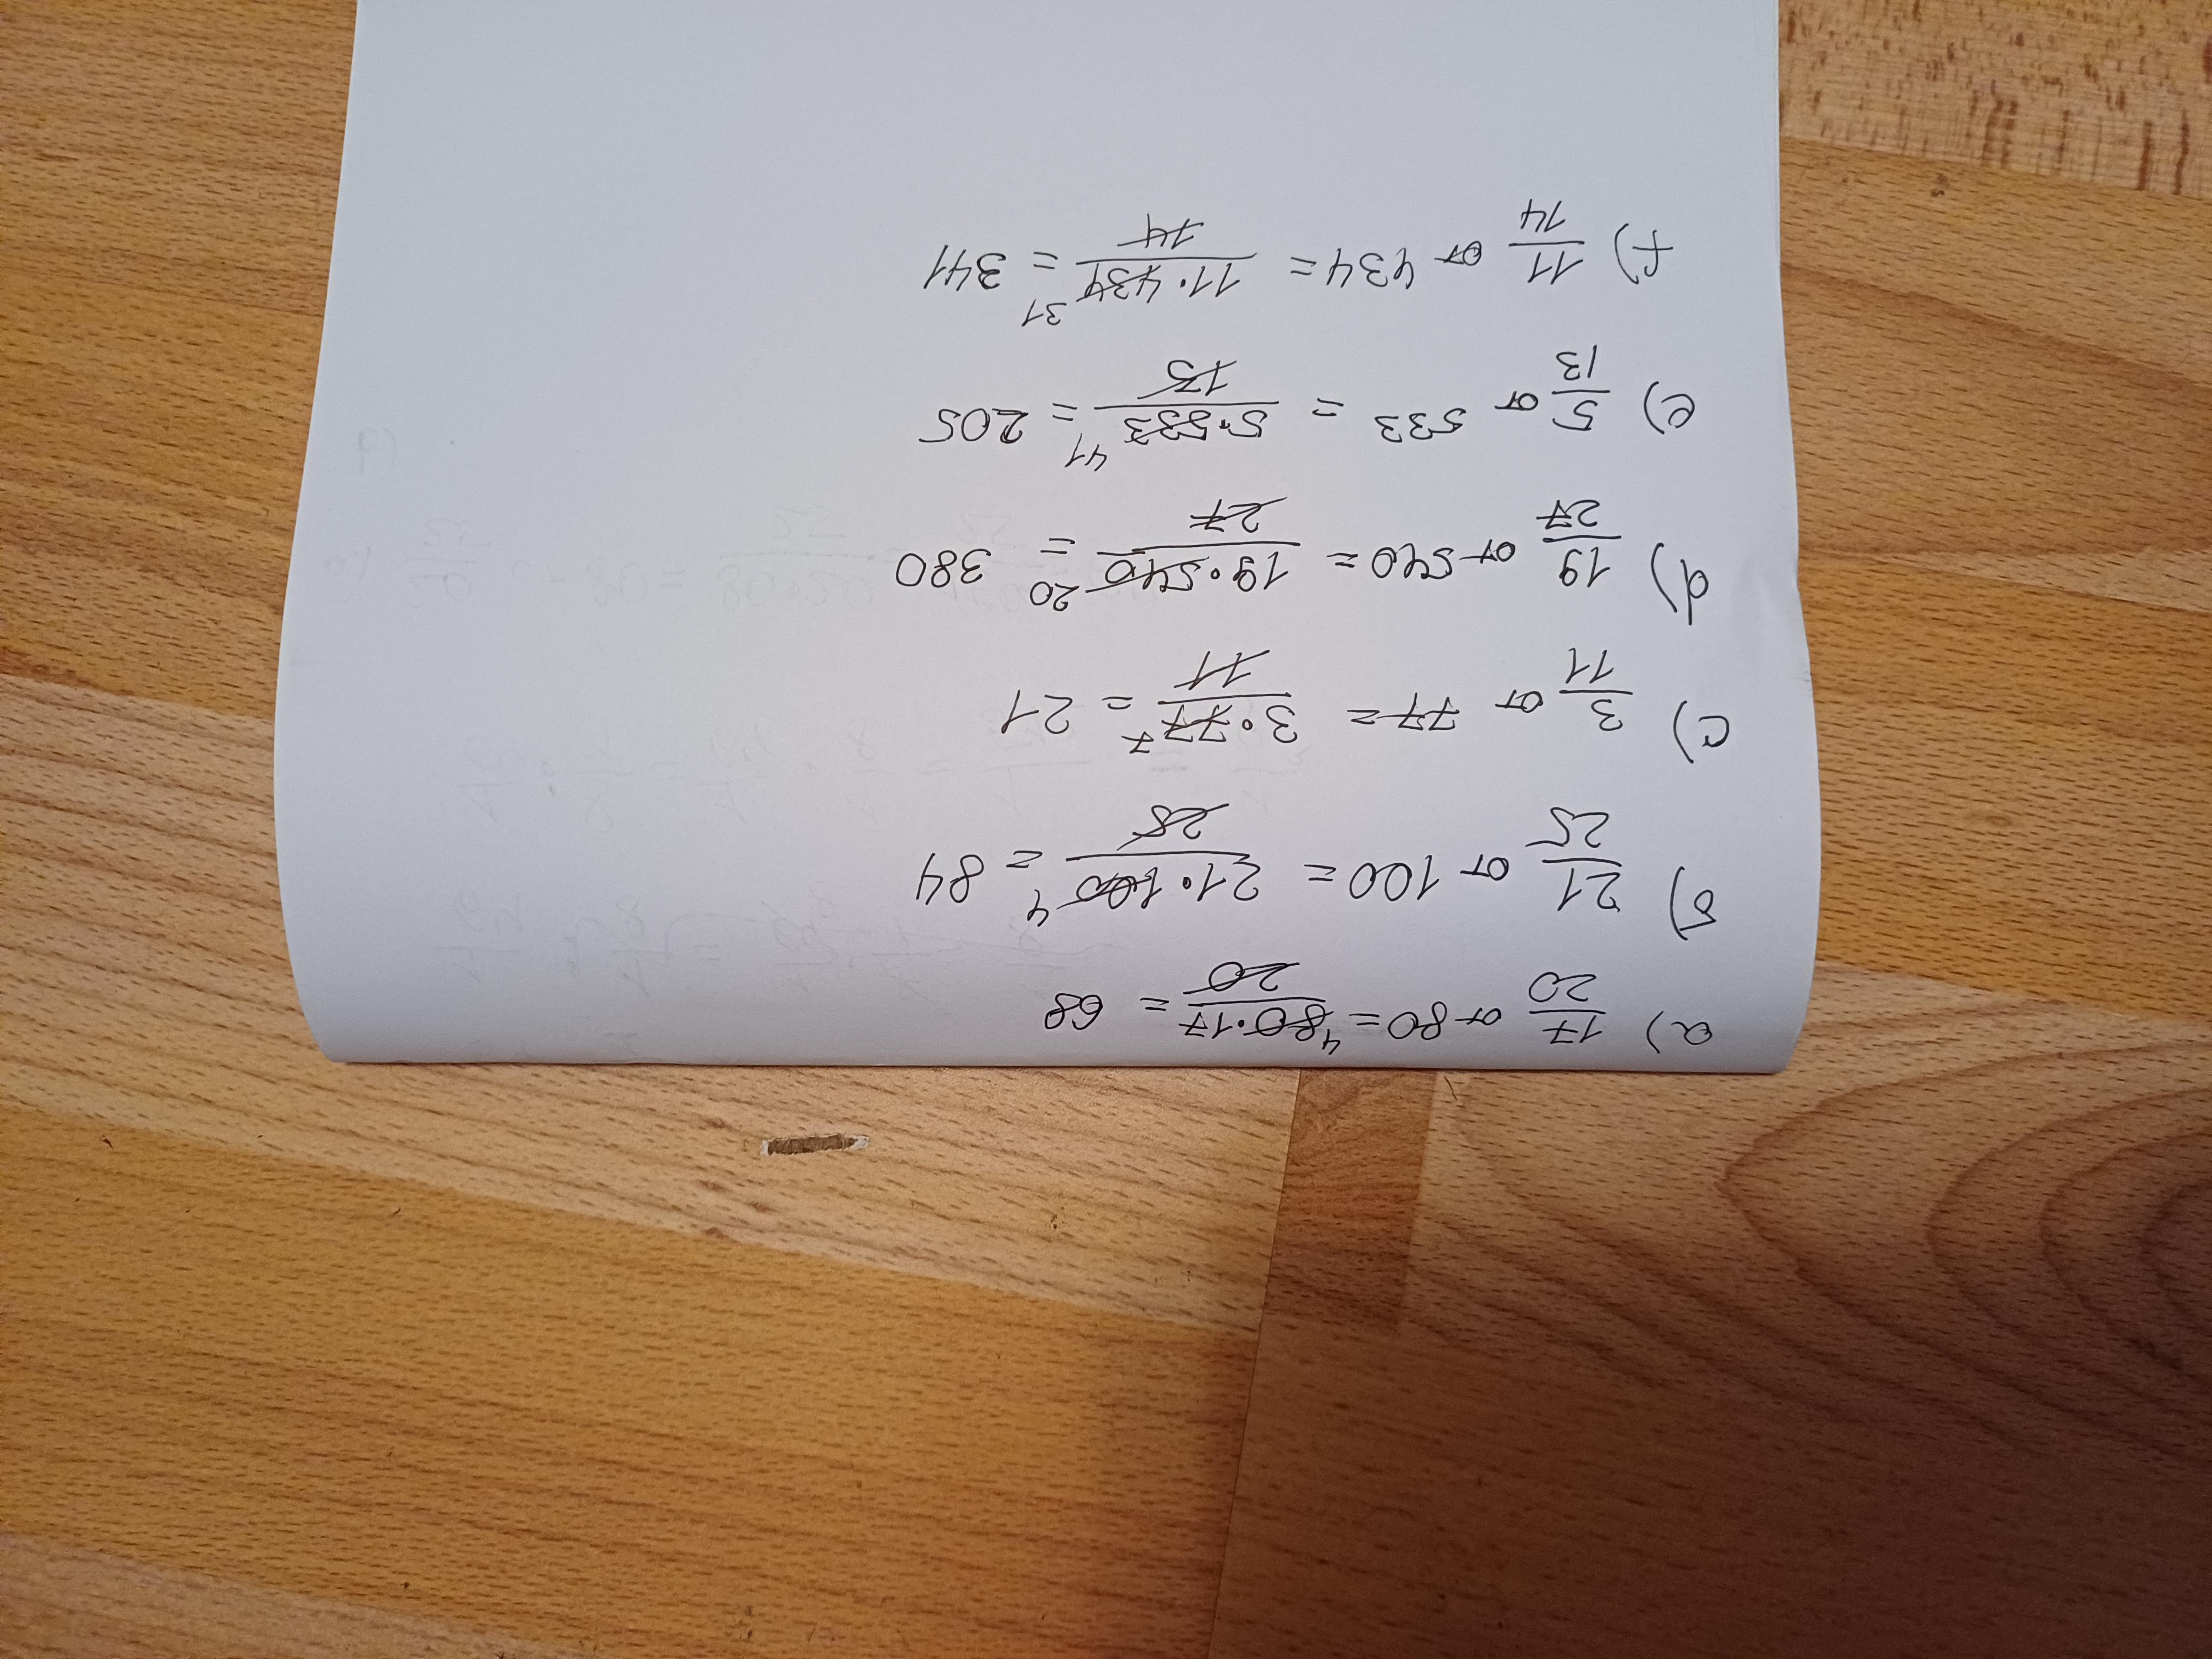 a) 17/20 от 80 = 80·17/20 4 = 68
б) 21/25 от 100 = 21·100/25 4 = 84
c) 3/11 от 77 = 3·77/11 7 = 21
d) 19/27 от 540 = 19·540/27 20 = 380
e) 5/13 от 533 = 5·533/13 41 = 205
f) 11/14 от 434 = 11·434/14 31 = 341